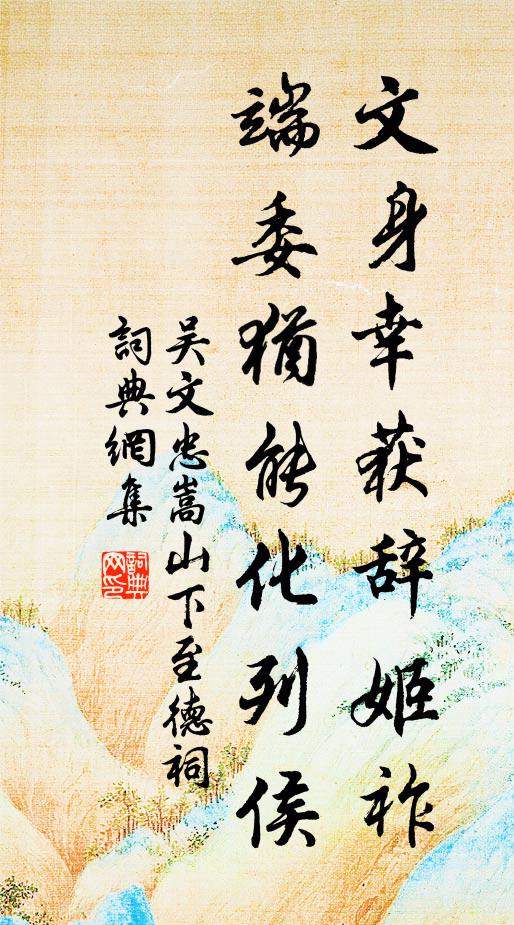 文身幸获辞姬祚
端委猶能化列侯
吴文忠嵩山下至德祠
詞典網集
詞典網印